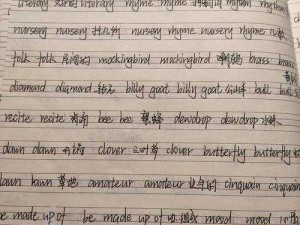 literary 文学的 literary rhyme rhyme rhythm rhythm
nursery nursery 托儿所 nursery rhyme nursery rhyme
folk folk 民间的 mockingbird mockingbird brass brass
diamond diamond 钻石 billy goat billy goat 公山羊 bull bull
recite recite 背诵 bee bee 蜜蜂 dewdrop dewdrop 水珠
dawn dawn clover 三叶草 clover butterfly butterfly
lawn lawn 草地 amateur amateur 业余的 cinquain cinquain
be made up of be made up of mood mood